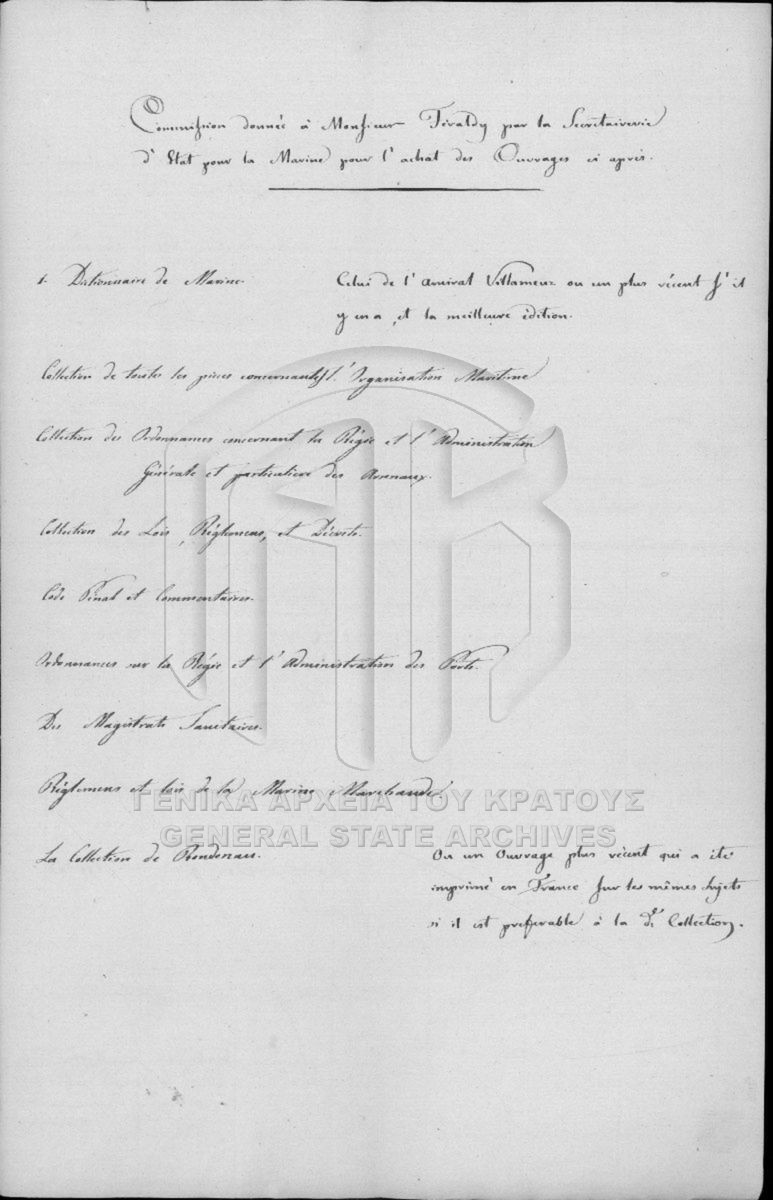 Commission donnée à Monsieur Feraldy par la Secrétairerie
d'Etat pour la Marine pour l'achat des Ouvrages ci après.
1. Dictionnaire de Marine. Celui de l'Amiral Villameuz ou un plus récent s'il
y en a, et la meilleure édition.
Collection de toutes les pièces concernantes l'Organisation Maritime
Collection des Ordonnances concernant la Régie et l'Administration
Générale et particulière des Arsenaux.
Collection des Lois, Réglemens, et Décrets.
Code Pénal et Commentaires.
Ordonnances sur la Régie et l'Administration des Ports.
Des Magistrats Sanitaires.
Réglemens et lois de la Marine Marchande
ΓΕΝΙΚΑ ΑΡΧΕΙΑ ΤΟΥ ΚΡΑΤΟΥΣ
GENERAL STATE ARCHIVES
La Collection de Ou un Ouvrage plus récent qui a été
imprimé en France sur les mêmes sujets
si il est preferable à la de Collection.